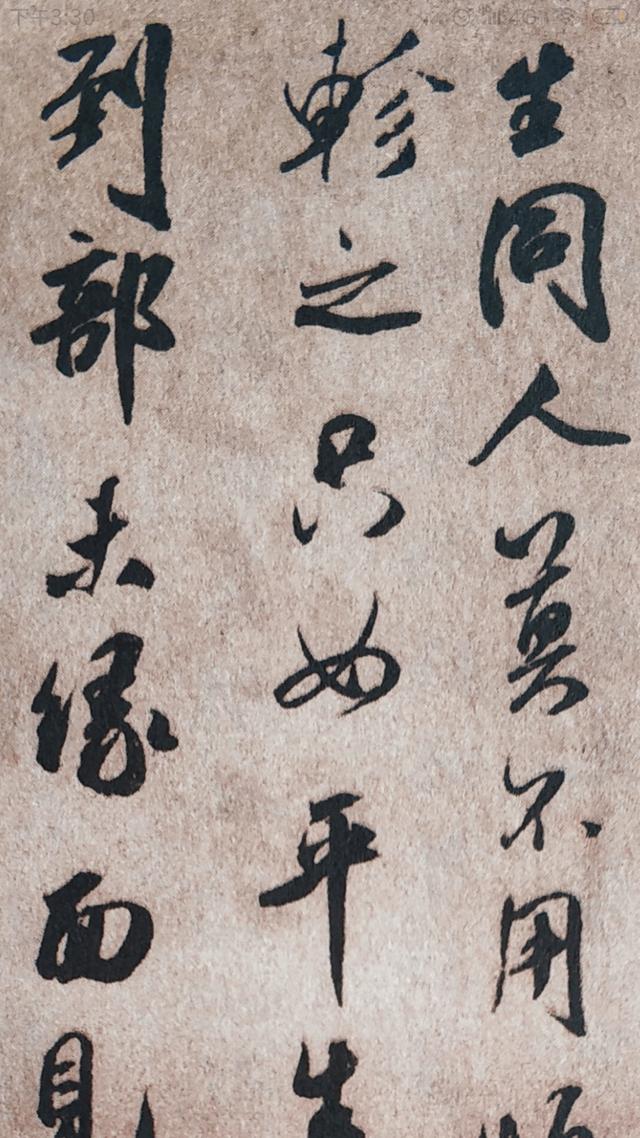 下午3:30
生同人莫不用
軫之只如平生
到部未緣面見